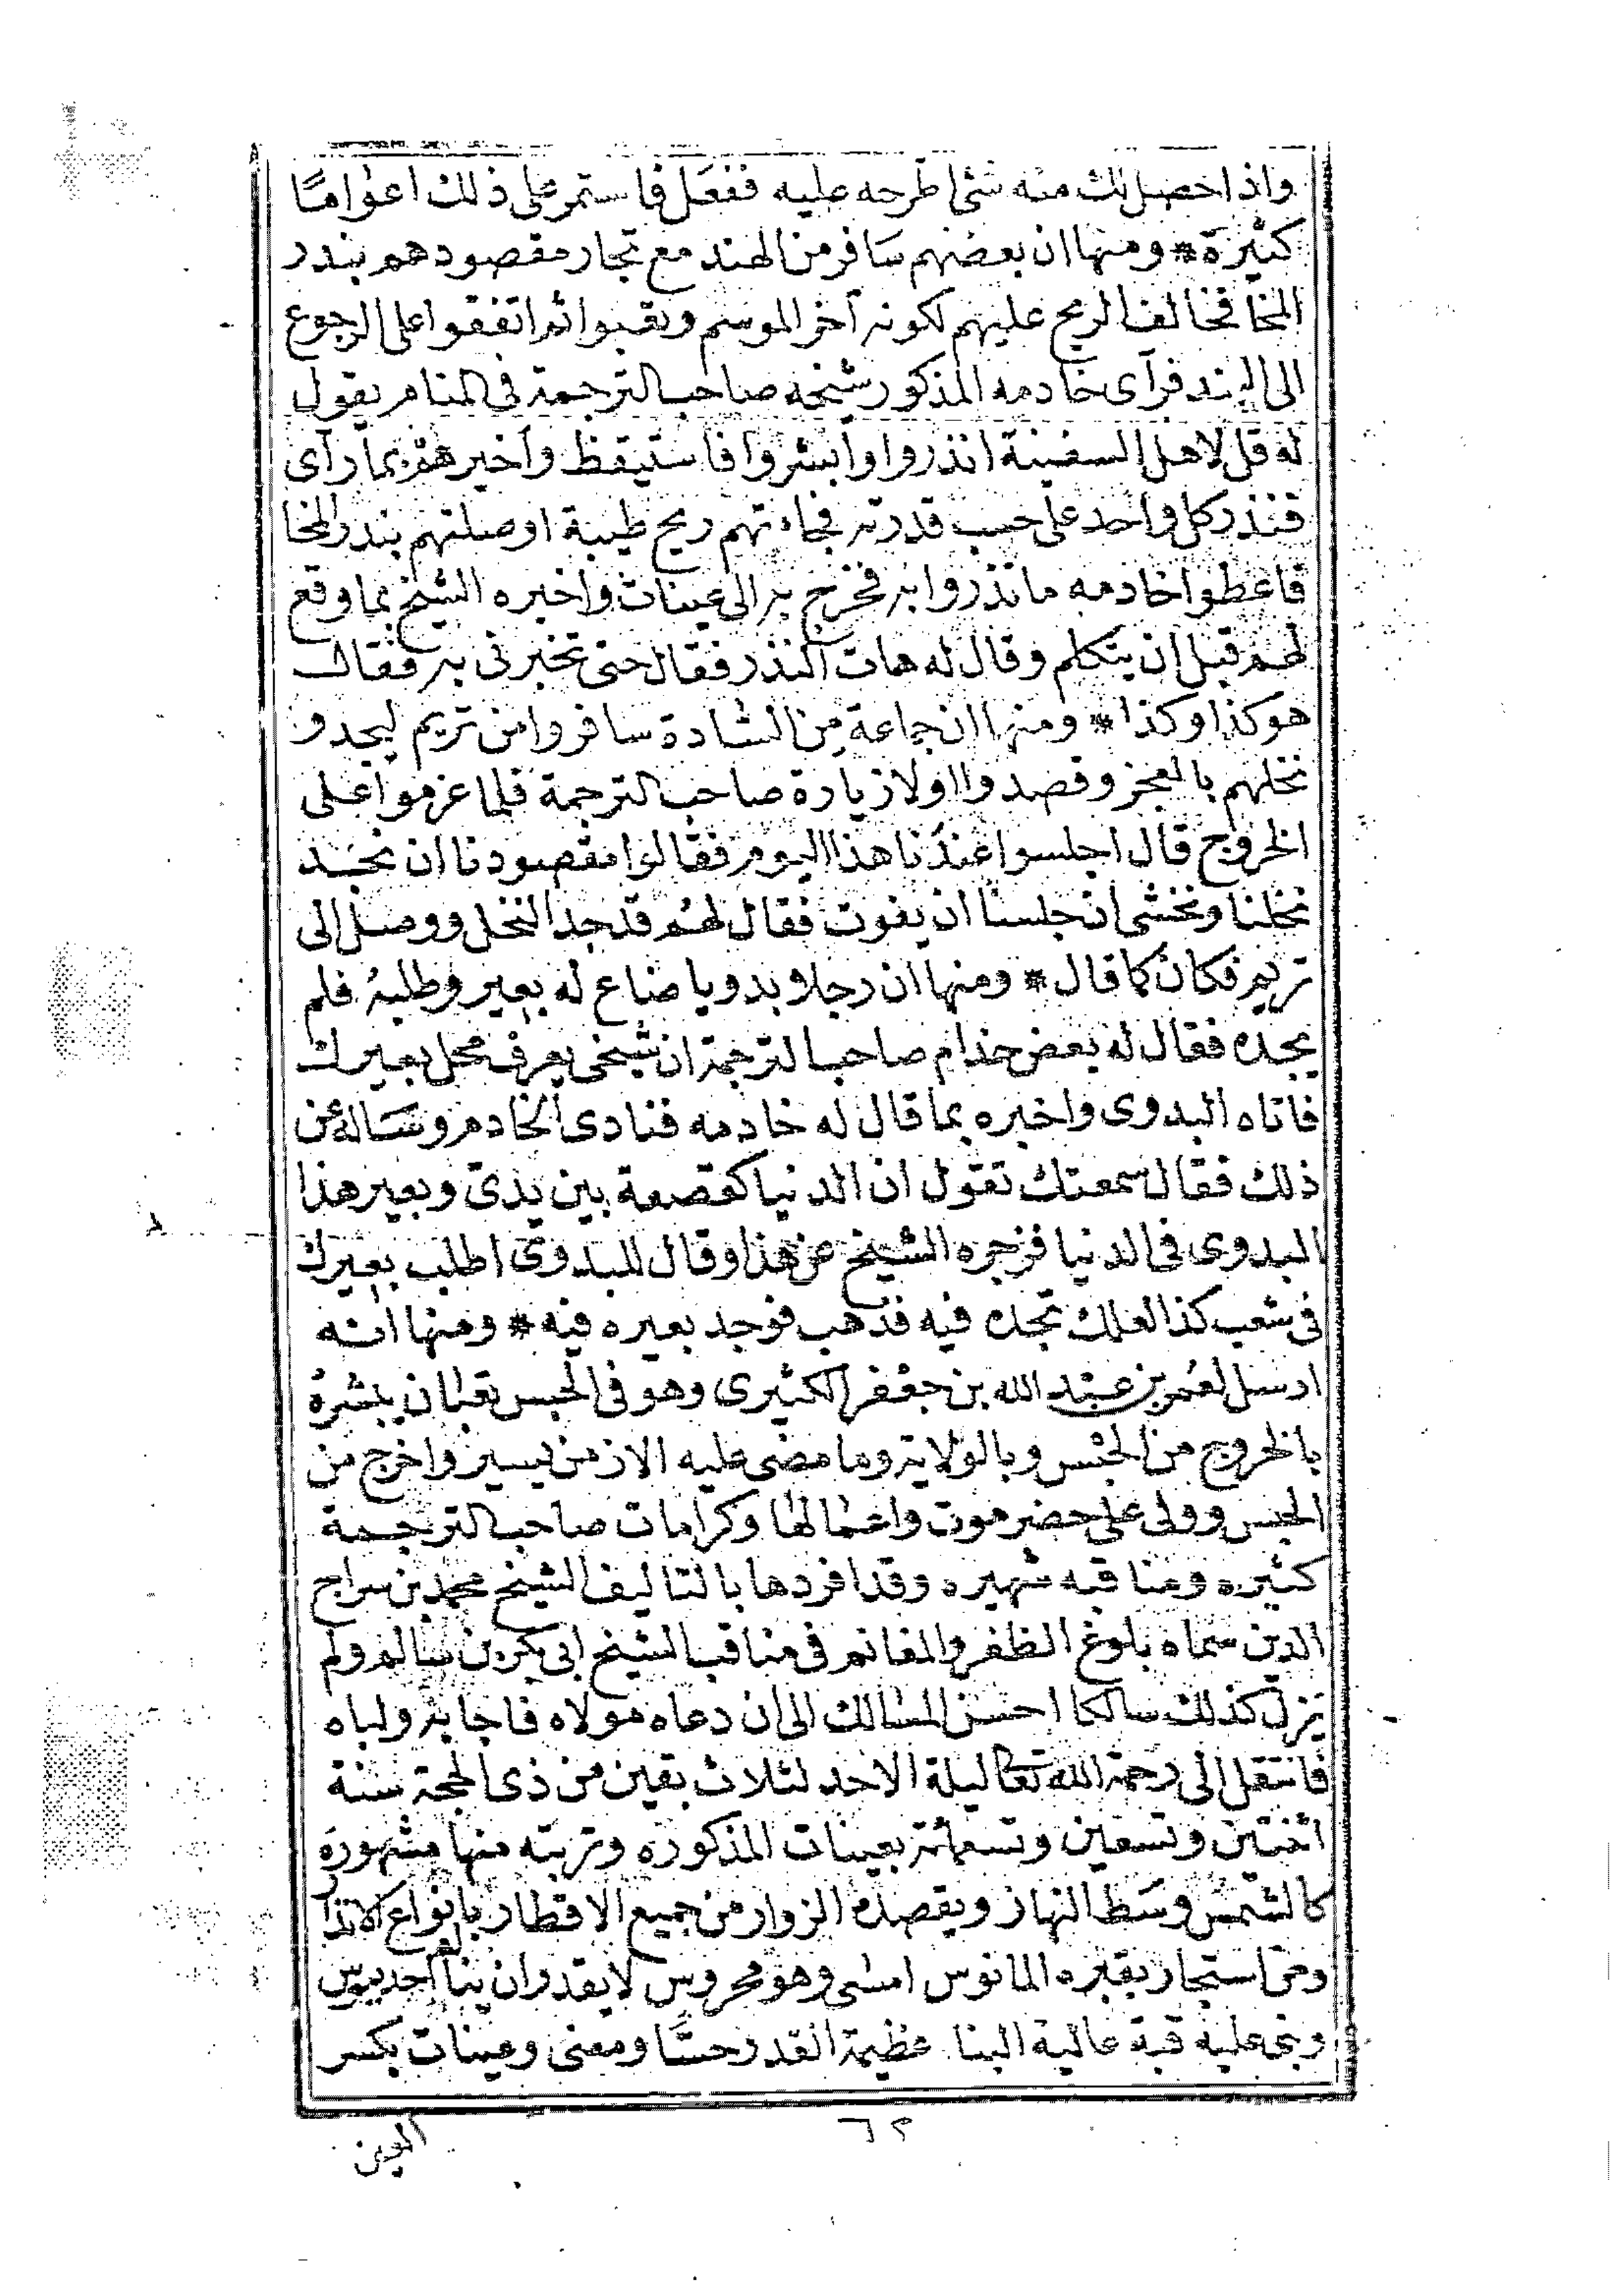 واذا حصل لك منه شئ اطرحه عليه ففعل فاستمر على ذلك اعواما
كثيرة * ومنها ان بعضهم سافر من الهند مع تجار مقصودهم بندر
المخا فخالف الريح عليهم لكونه آخر الموسم وتعبوا ثم اتفقوا على الرجوع
الى الهند فرآى خادمه المذكور شيخه صاحب الترجمة فى المنام يقول
له قل لاهل السفينة انذروا وأبشروا فاستيقظ وأخبرهم بما رآى
فنذر كل واحد على حسب قدرته فجاءتهم ريح طيبة اوصلتهم بندر المخا
فاعطوا خادمه ما نذروا به فخرج به الى عينات واخبره الشيخ بما وقع
لهم قبل ان يتكلم وقال له هات النذر فقال حتى تخبرنى به فقال
هو كذا وكذا * ومنها ان جماعة من السادة سافروا من تريم ليجدو
نخلهم بالعجز وقصدوا اولا زيارة صاحب الترجمة فلما عزموا على
الخروج قال اجلسوا عندنا هذا اليوم فقالوا مقصودنا ان نجد
نخلنا ونخشى ان جلسنا ان يفوت فقال لهم قد جد النخل ووصل الى
تريم فكان كما قال * ومنها ان رجلا بدويا ضاع له بعير وطلبه فلم
يجده فقال له بعض خدام صاحب الترجمة ان شيخى يعرف محل بعيرك
فاتاه البدوى واخبره بما قال له خادمه فنادى الخادم وسأله عن
ذلك فقال سمعتك تقول ان الدنيا كقصعة بين يدى وبعير هذا
البدوى فى الدنيا فزجره الشيخ عن هذا وقال للبدوى اطلب بعيرك
فى شعب كذا لعلك تجده فيه فذهب فوجد بعيره فيه * ومنها انه
ارسل لعمر بن عبد الله بن جعفر الكثيرى وهو فى الحبس تعبان يبشره
بالخروج من الحبس وبالولاية وما مضى عليه الا زمن يسير واخرج من
الحبس وولى على حضرموت واعمالها وكرامات صاحب الترجمة
كثيره ومناقبه شهيره وقد افردها بالتاليف الشيخ محمد بن سراج
الدين سماه بلوغ الظفر والمغانم فى مناقب الشيخ ابى بكر بن سالم ولم
يزل كذلك سالكا احسن المسالك الى ان دعاه مولاه فاجابه ولباه
فانتقل الى رحمة الله تعالى ليلة الاحد لثلاث بقين من ذى الحجة سنة
اثنتين وتسعين وتسعمائة بعينات المذكوره وتربته منها مشهورة
كالشمس وسط النهار ويقصده الزوار من جميع الاقطار بانواع الانذار
ومن استجار بقبره المانوس امسى وهو محروس لا يقدر ان يناله احد بموس
وبنى عليه قبة عالية البنا عظيمة القدر حسًّا ومعنى وعينات بكسر
٦٢
العين